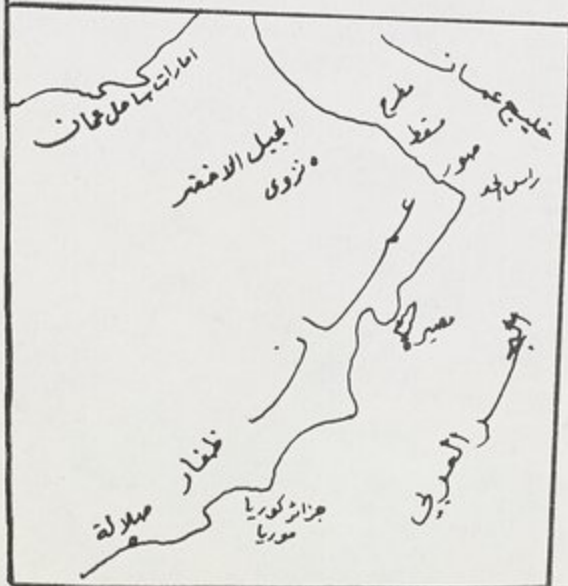 خليج عمان
امارات ساحل عمان
مطرح
مسقط
صور
راس الحد
الجبل الاخضر
نزوى
عمان
مصيرة
البحر العربي
ظفار
صلالة
جزائر كوريا
موريا